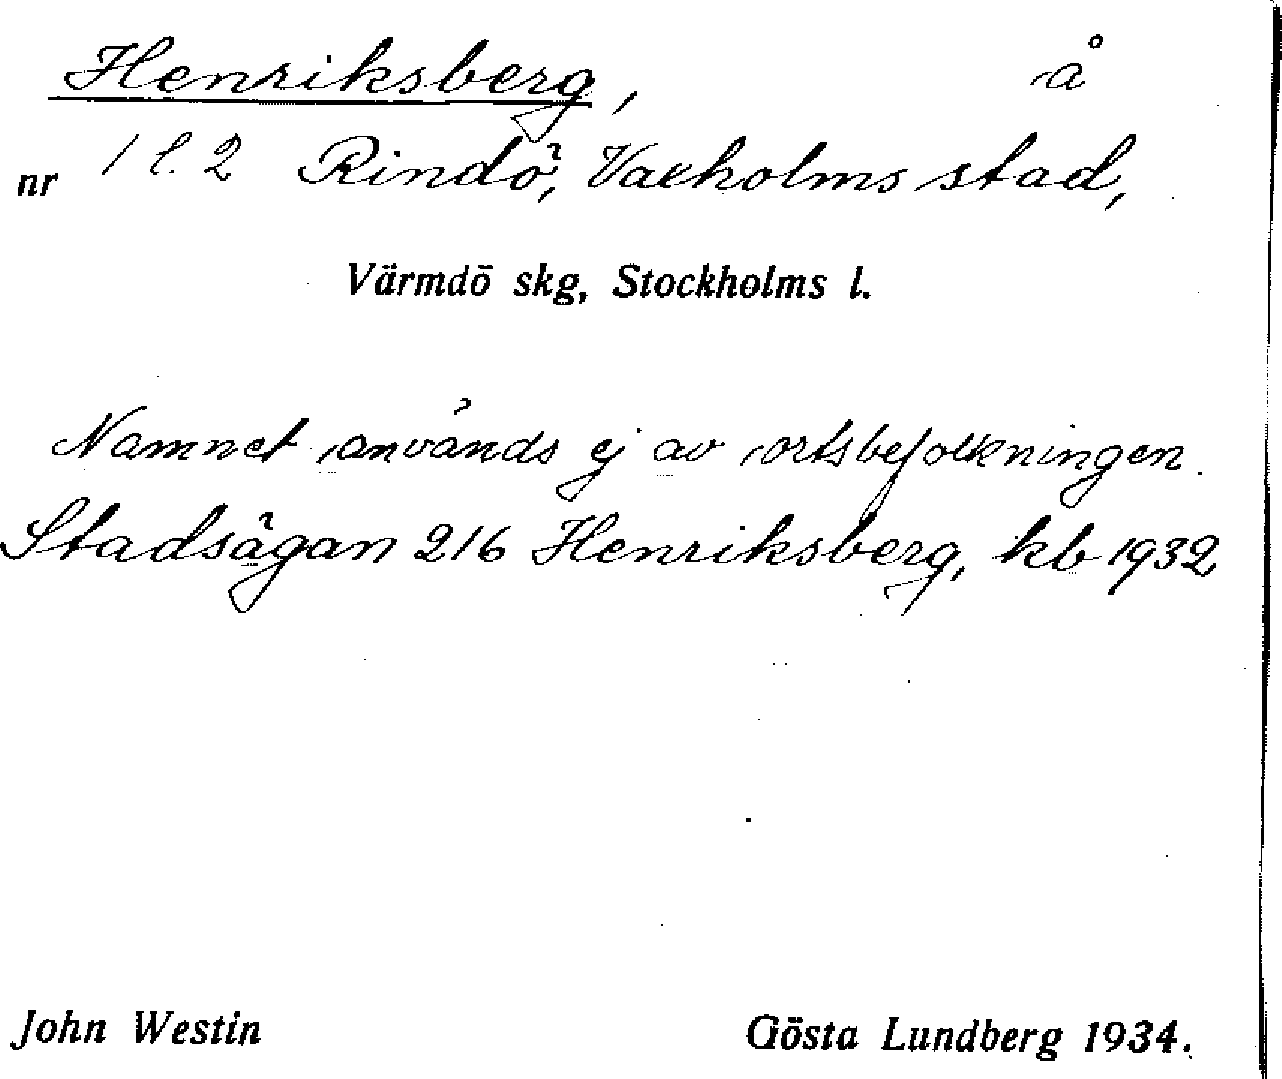 Henriksberg, å
nr 1 l. 2 Rindö, Vaxholms stad,
Värmdö skg, Stockholms l.
Namnet används ej av ortsbefolkningen.
Stadsägan 216 Henriksberg, kb 1932
John Westin Gösta Lundberg 1934.